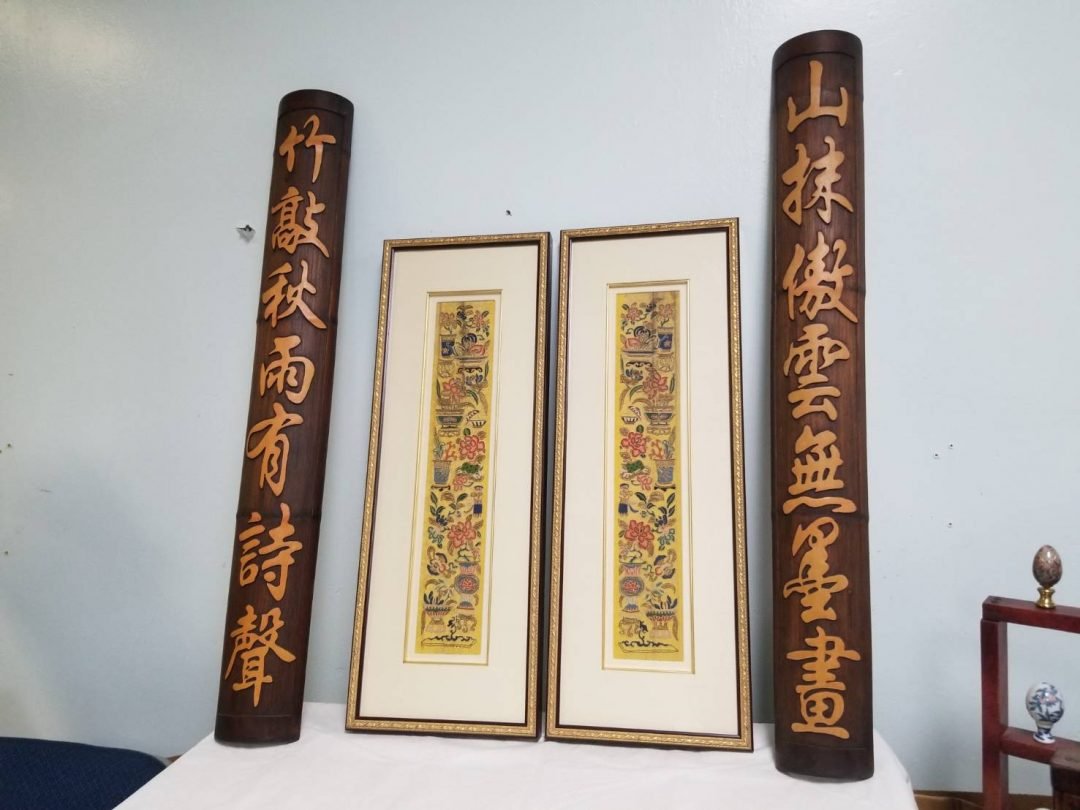 山抹微雲無墨畫
竹敲秋雨有詩聲